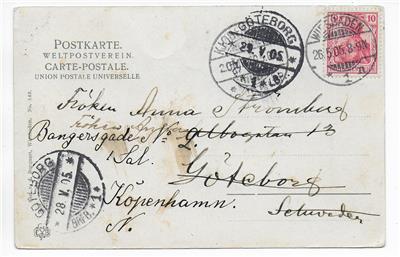 POSTKARTE.
WELTPOSTVEREIN.
CARTE-POSTALE.
UNION POSTALE UNIVERSELLE.
GÖTEBORG
28.V.05.
WIESBADEN
26.5.05.8-9N.
1
10
Fröken Anna Stromberg
Fröken
Bangersgade No 2
13
1 Sal.
Göteborg
Kopenhamn.
N.
Schweden
GÖTEBORG
28.V.05.
*1*